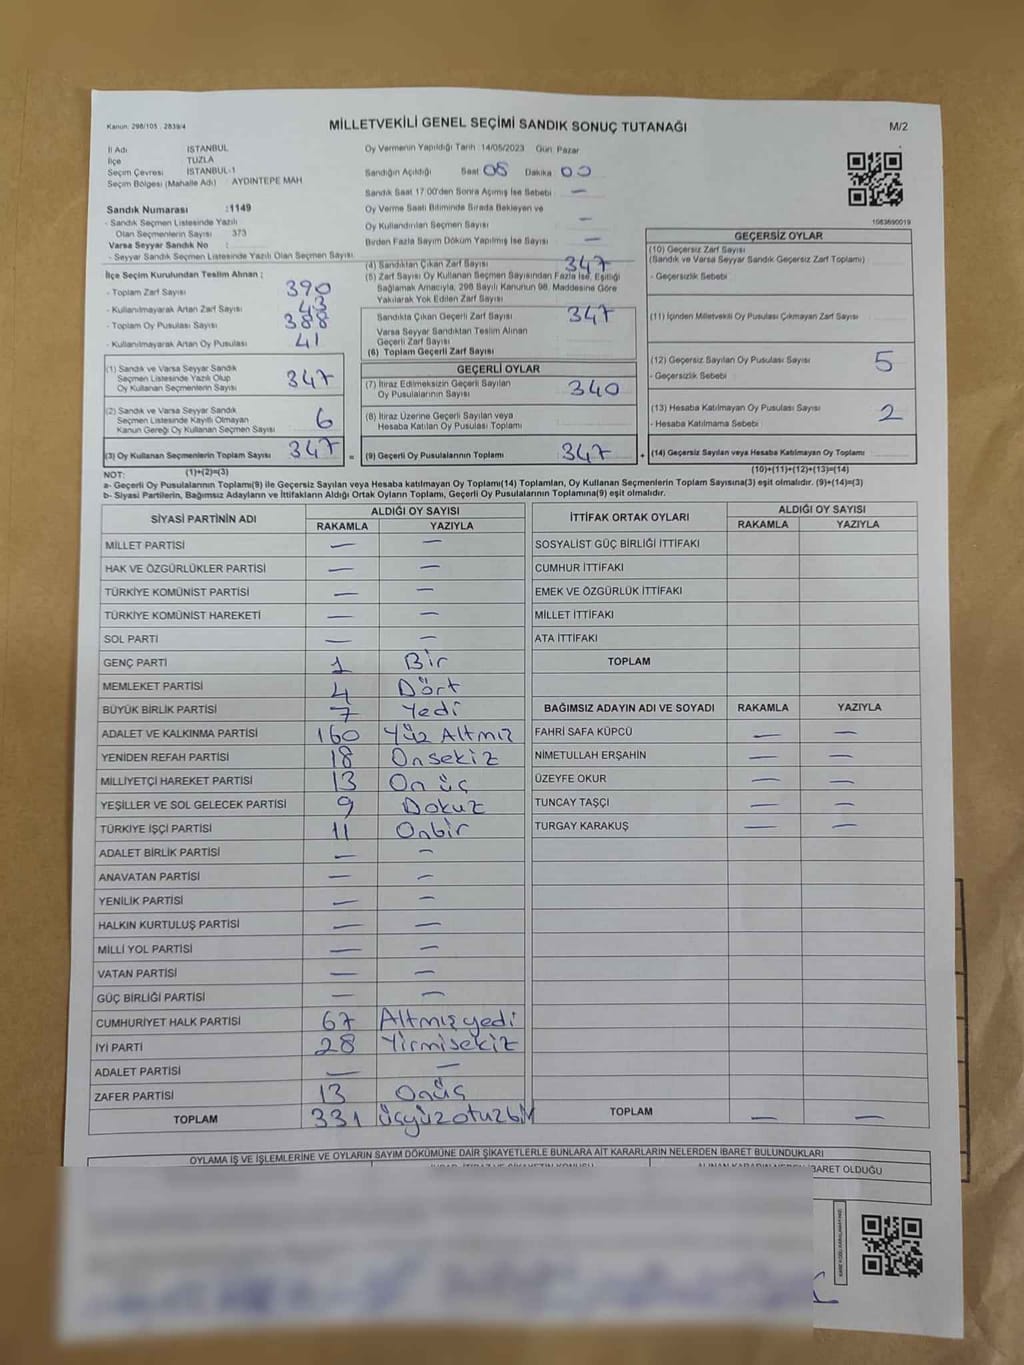 Kanun: 298/105 . 2839/4
MİLLETVEKİLİ GENEL SEÇİMİ SANDIK SONUÇ TUTANAĞI
M/2
İl Adı İSTANBUL
İlçe TUZLA
Seçim Çevresi İSTANBUL-1
Seçim Bölgesi (Mahalle Adı) AYDINTEPE MAH
Sandık Numarası :1149
- Sandık Seçmen Listesinde Yazılı
Olan Seçmenlerin Sayısı 373
Varsa Seyyar Sandık No :
- Seyyar Sandık Seçmen Listesinde Yazılı Olan Seçmen Sayısı:
Oy Vermenin Yapıldığı Tarih :14/05/2023 Gün: Pazar
Sandığın Açıldığı Saat 08 Dakika 00
Sandık Saat 17:00'den Sonra Açılmış İse Sebebi —
Oy Verme Saati Bitiminde Sırada Bekleyen ve
Oy Kullandırılan Seçmen Sayısı —
Birden Fazla Sayım Döküm Yapılmış İse Sayısı —
1083690019
İlçe Seçim Kurulundan Teslim Alınan :
- Toplam Zarf Sayısı 390
- Kullanılmayarak Artan Zarf Sayısı 43
- Toplam Oy Pusulası Sayısı 388
- Kullanılmayarak Artan Oy Pusulası 41
(1) Sandık ve Varsa Seyyar Sandık
Seçmen Listesinde Yazılı Olup
Oy Kullanan Seçmenlerin Sayısı 347
(2) Sandık ve Varsa Seyyar Sandık
Seçmen Listesinde Kayıtlı Olmayan
Kanun Gereği Oy Kullanan Seçmen Sayısı 6
(3) Oy Kullanan Seçmenlerin Toplam Sayısı 347 =
(4) Sandıktan Çıkan Zarf Sayısı 347
(5) Zarf Sayısı Oy Kullanan Seçmen Sayısından Fazla İse, Eşitliği
Sağlamak Amacıyla, 298 Sayılı Kanunun 98. Maddesine Göre
Yakılarak Yok Edilen Zarf Sayısı
Sandıkta Çıkan Geçerli Zarf Sayısı 347
Varsa Seyyar Sandıktan Teslim Alınan
Geçerli Zarf Sayısı
(6) Toplam Geçerli Zarf Sayısı
GEÇERLİ OYLAR
(7) İtiraz Edilmeksizin Geçerli Sayılan
Oy Pusulalarının Sayısı 340
(8) İtiraz Üzerine Geçerli Sayılan veya
Hesaba Katılan Oy Pusulası Toplamı
(9) Geçerli Oy Pusulalarının Toplamı 347 +
GEÇERSİZ OYLAR
(10) Geçersiz Zarf Sayısı
(Sandık ve Varsa Seyyar Sandık Geçersiz Zarf Toplamı)
- Geçersizlik Sebebi
(11) İçinden Milletvekili Oy Pusulası Çıkmayan Zarf Sayısı
(12) Geçersiz Sayılan Oy Pusulası Sayısı 5
- Geçersizlik Sebebi
(13) Hesaba Katılmayan Oy Pusulası Sayısı 2
- Hesaba Katılmama Sebebi
(14) Geçersiz Sayılan veya Hesaba Katılmayan Oy Toplamı
NOT: (1)+(2)=(3) (10)+(11)+(12)+(13)=(14)
a- Geçerli Oy Pusulalarının Toplamı(9) ile Geçersiz Sayılan veya Hesaba katılmayan Oy Toplamı(14) Toplamları, Oy Kullanan Seçmenlerin Toplam Sayısına(3) eşit olmalıdır. (9)+(14)=(3)
b- Siyasi Partilerin, Bağımsız Adayların ve İttifakların Aldığı Ortak Oyların Toplamı, Geçerli Oy Pusulalarının Toplamına(9) eşit olmalıdır.
SİYASİ PARTİNİN ADI ALDIĞI OY SAYISI
RAKAMLA YAZIYLA
MİLLET PARTİSİ — —
HAK VE ÖZGÜRLÜKLER PARTİSİ — —
TÜRKİYE KOMÜNİST PARTİSİ — —
TÜRKİYE KOMÜNİST HAREKETİ — —
SOL PARTİ — —
GENÇ PARTİ 1 Bir
MEMLEKET PARTİSİ 4 Dört
BÜYÜK BİRLİK PARTİSİ 7 Yedi
ADALET VE KALKINMA PARTİSİ 160 Yüz Altmız
YENİDEN REFAH PARTİSİ 18 Onsekiz
MİLLİYETÇİ HAREKET PARTİSİ 13 On üç
YEŞİLLER VE SOL GELECEK PARTİSİ 9 Dokuz
TÜRKİYE İŞÇİ PARTİSİ 11 Onbir
ADALET BİRLİK PARTİSİ — —
ANAVATAN PARTİSİ — —
YENİLİK PARTİSİ — —
HALKIN KURTULUŞ PARTİSİ — —
MİLLİ YOL PARTİSİ — —
VATAN PARTİSİ — —
GÜÇ BİRLİĞİ PARTİSİ — —
CUMHURİYET HALK PARTİSİ 67 Altmışyedi
İYİ PARTİ 28 Yirmisekiz
ADALET PARTİSİ — —
ZAFER PARTİSİ 13 Onüç
TOPLAM 331 üçyüzotuzbir
İTTİFAK ORTAK OYLARI ALDIĞI OY SAYISI
RAKAMLA YAZIYLA
SOSYALİST GÜÇ BİRLİĞİ İTTİFAKI
CUMHUR İTTİFAKI
EMEK VE ÖZGÜRLÜK İTTİFAKI
MİLLET İTTİFAKI
ATA İTTİFAKI
TOPLAM
BAĞIMSIZ ADAYIN ADI VE SOYADI RAKAMLA YAZIYLA
FAHRİ SAFA KÜPCÜ — —
NİMETULLAH ERŞAHİN — —
ÜZEYFE OKUR — —
TUNCAY TAŞÇI — —
TURGAY KARAKUŞ — —
TOPLAM — —
OYLAMA İŞ VE İŞLEMLERİNE VE OYLARIN SAYIM DÖKÜMÜNE DAİR ŞİKAYETLERLE BUNLARA AİT KARARLARIN NELERDEN İBARET BULUNDUKLARI
İBARET OLDUĞU